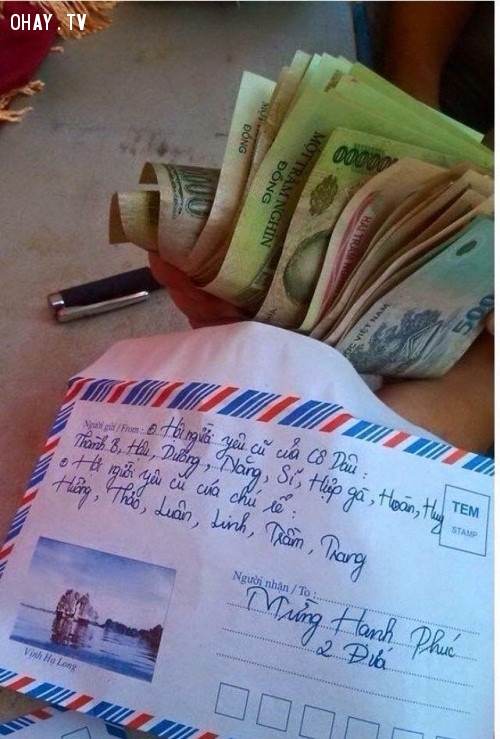 OHAY.TV
000
MỘT
ĐỒNG
MỘT TRĂM NGHÌN
ĐỒNG
000000
HAI TRĂM
VIỆT NAM
500
Người gửi / From : Hội người yêu cũ của Cô Dâu :
Thành B, Hậu, Dưỡng, Năng, Sĩ, Hiệp gà, Hoàn, Huy
Hội người yêu cũ của chú rể :
Hường, Thảo, Luân, Linh, Trầm, Trang
TEM
STAMP
Người nhận / To :
Mừng Hạnh Phúc
2 Đứa
Vịnh Hạ Long